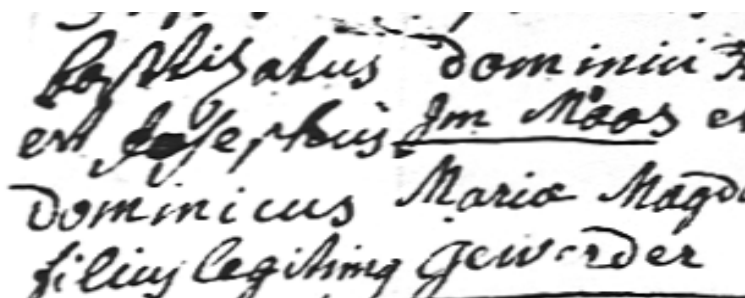 baptizatus Dominici
est Josephus Im Moos et
Dominicus Maria Magd
filius legitimq Gewerder